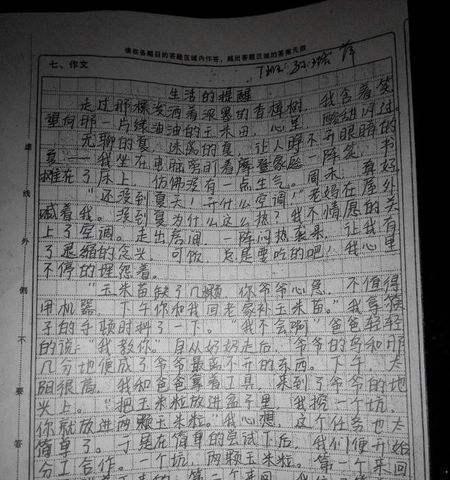 请在各题目的答题区域内作答，超出答题区域的答案无效
七、作文
生活的提醒
走过那棵发洒着浓墨的香樟树，我含着笑
望向那一片绿油油的玉米田，心里
无聊的夏，迷茫的夏，让人睁不开眼睛的
夏——我坐在电脑旁盯着摩登家庭一阵笑，书
摊在了床上，仿佛没有一点生气。周末，真好。
“还没到夏天！开什么空调！”老妈在屋外
喊着我。没到夏为什么这么热？我不情愿的关
上了空调。走出房间，一阵闷热袭来，让我有
了退缩的念头，可饭，总是要吃的吧！我心里
不停的埋怨着。
“玉米苗缺了几颗，你爷爷心急，不值得
用机器，下午你和我回老家补玉米苗。”我拿筷
子的手顿时抖了一下。“我不会啊”爸爸轻轻
的说：“我教你”自从奶奶走后，爷爷的鸟和那
几分地便成了爷爷最离不开的东西。下午，太
阳很高，我和爸爸拿着工具，来到了爷爷的地
头上。“把玉米粒放进盆子里，我挖一个坑，
你就放进两颗玉米粒。”我心想，这个任务也太
简单了。于是在简单的尝试下后，我们便开始
分工合作。一个坑，两颗玉米粒。第一个来回
虚线外侧不要答